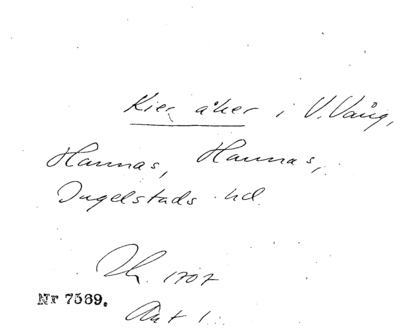 Kier åker i V. Vång,
Hannas, Hannas,
Ingelstads hd.
Lh. 1707
Nr 7569.
Akt 1.